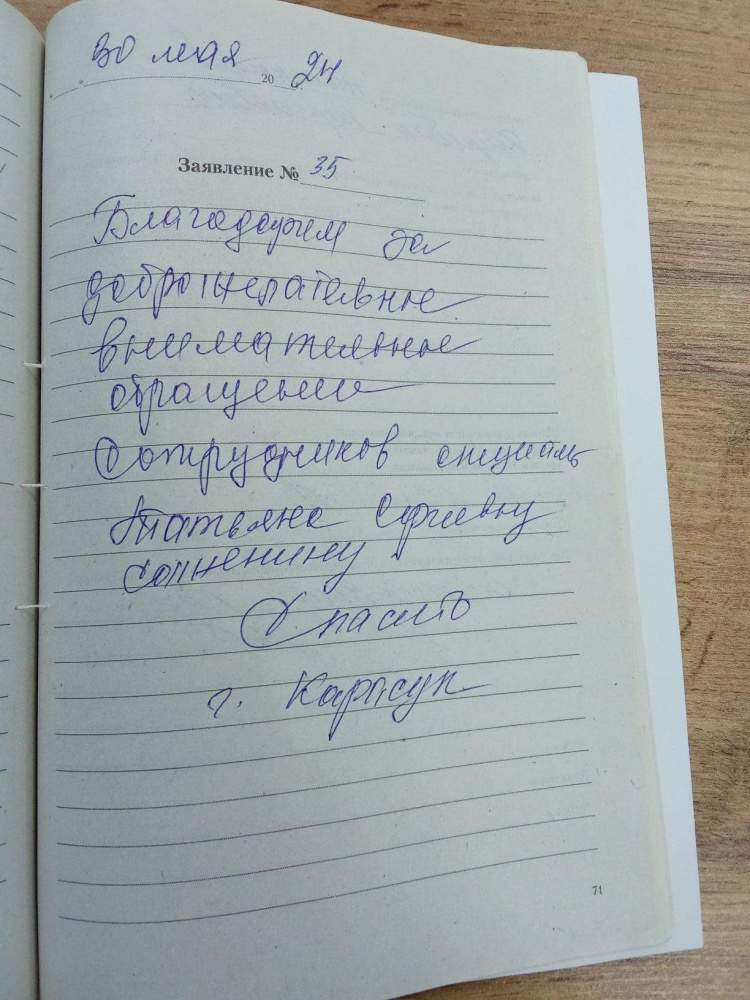 30 мая 20 24
Заявление № 35
Благодарим за
доброжелательные
внимательные
обращение
Сотрудников специаль
Татьяна Сергеевну
Спасибо
г. Карасук
71